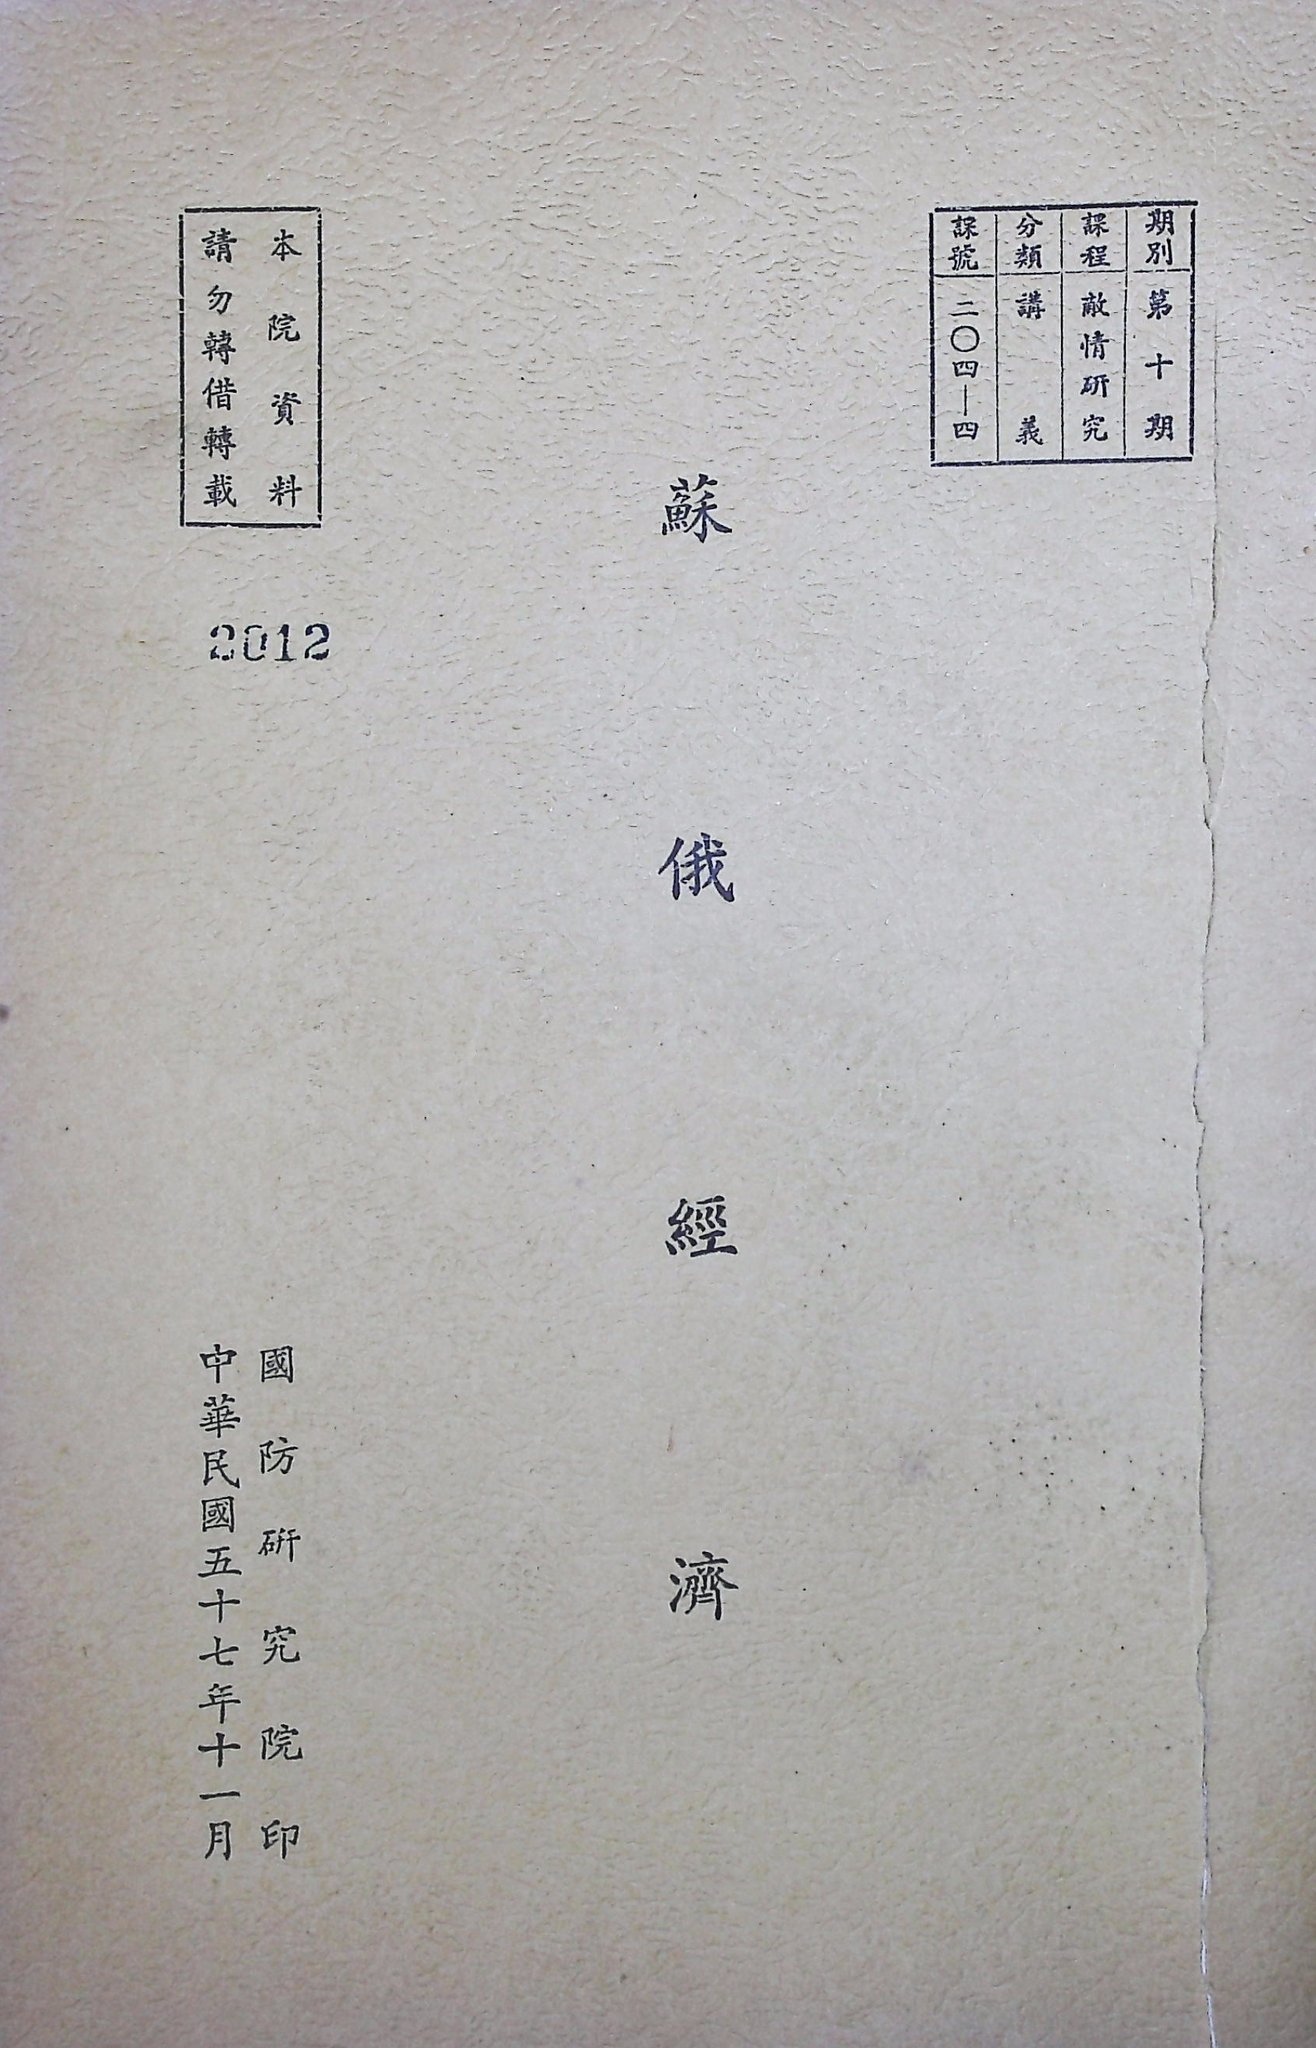 期別 第十期
課程 敵情研究
分類 講義
課號 二〇四—四
蘇俄經濟
本院資料
請勿轉借轉載
2012
國防研究院印
中華民國五十七年十一月